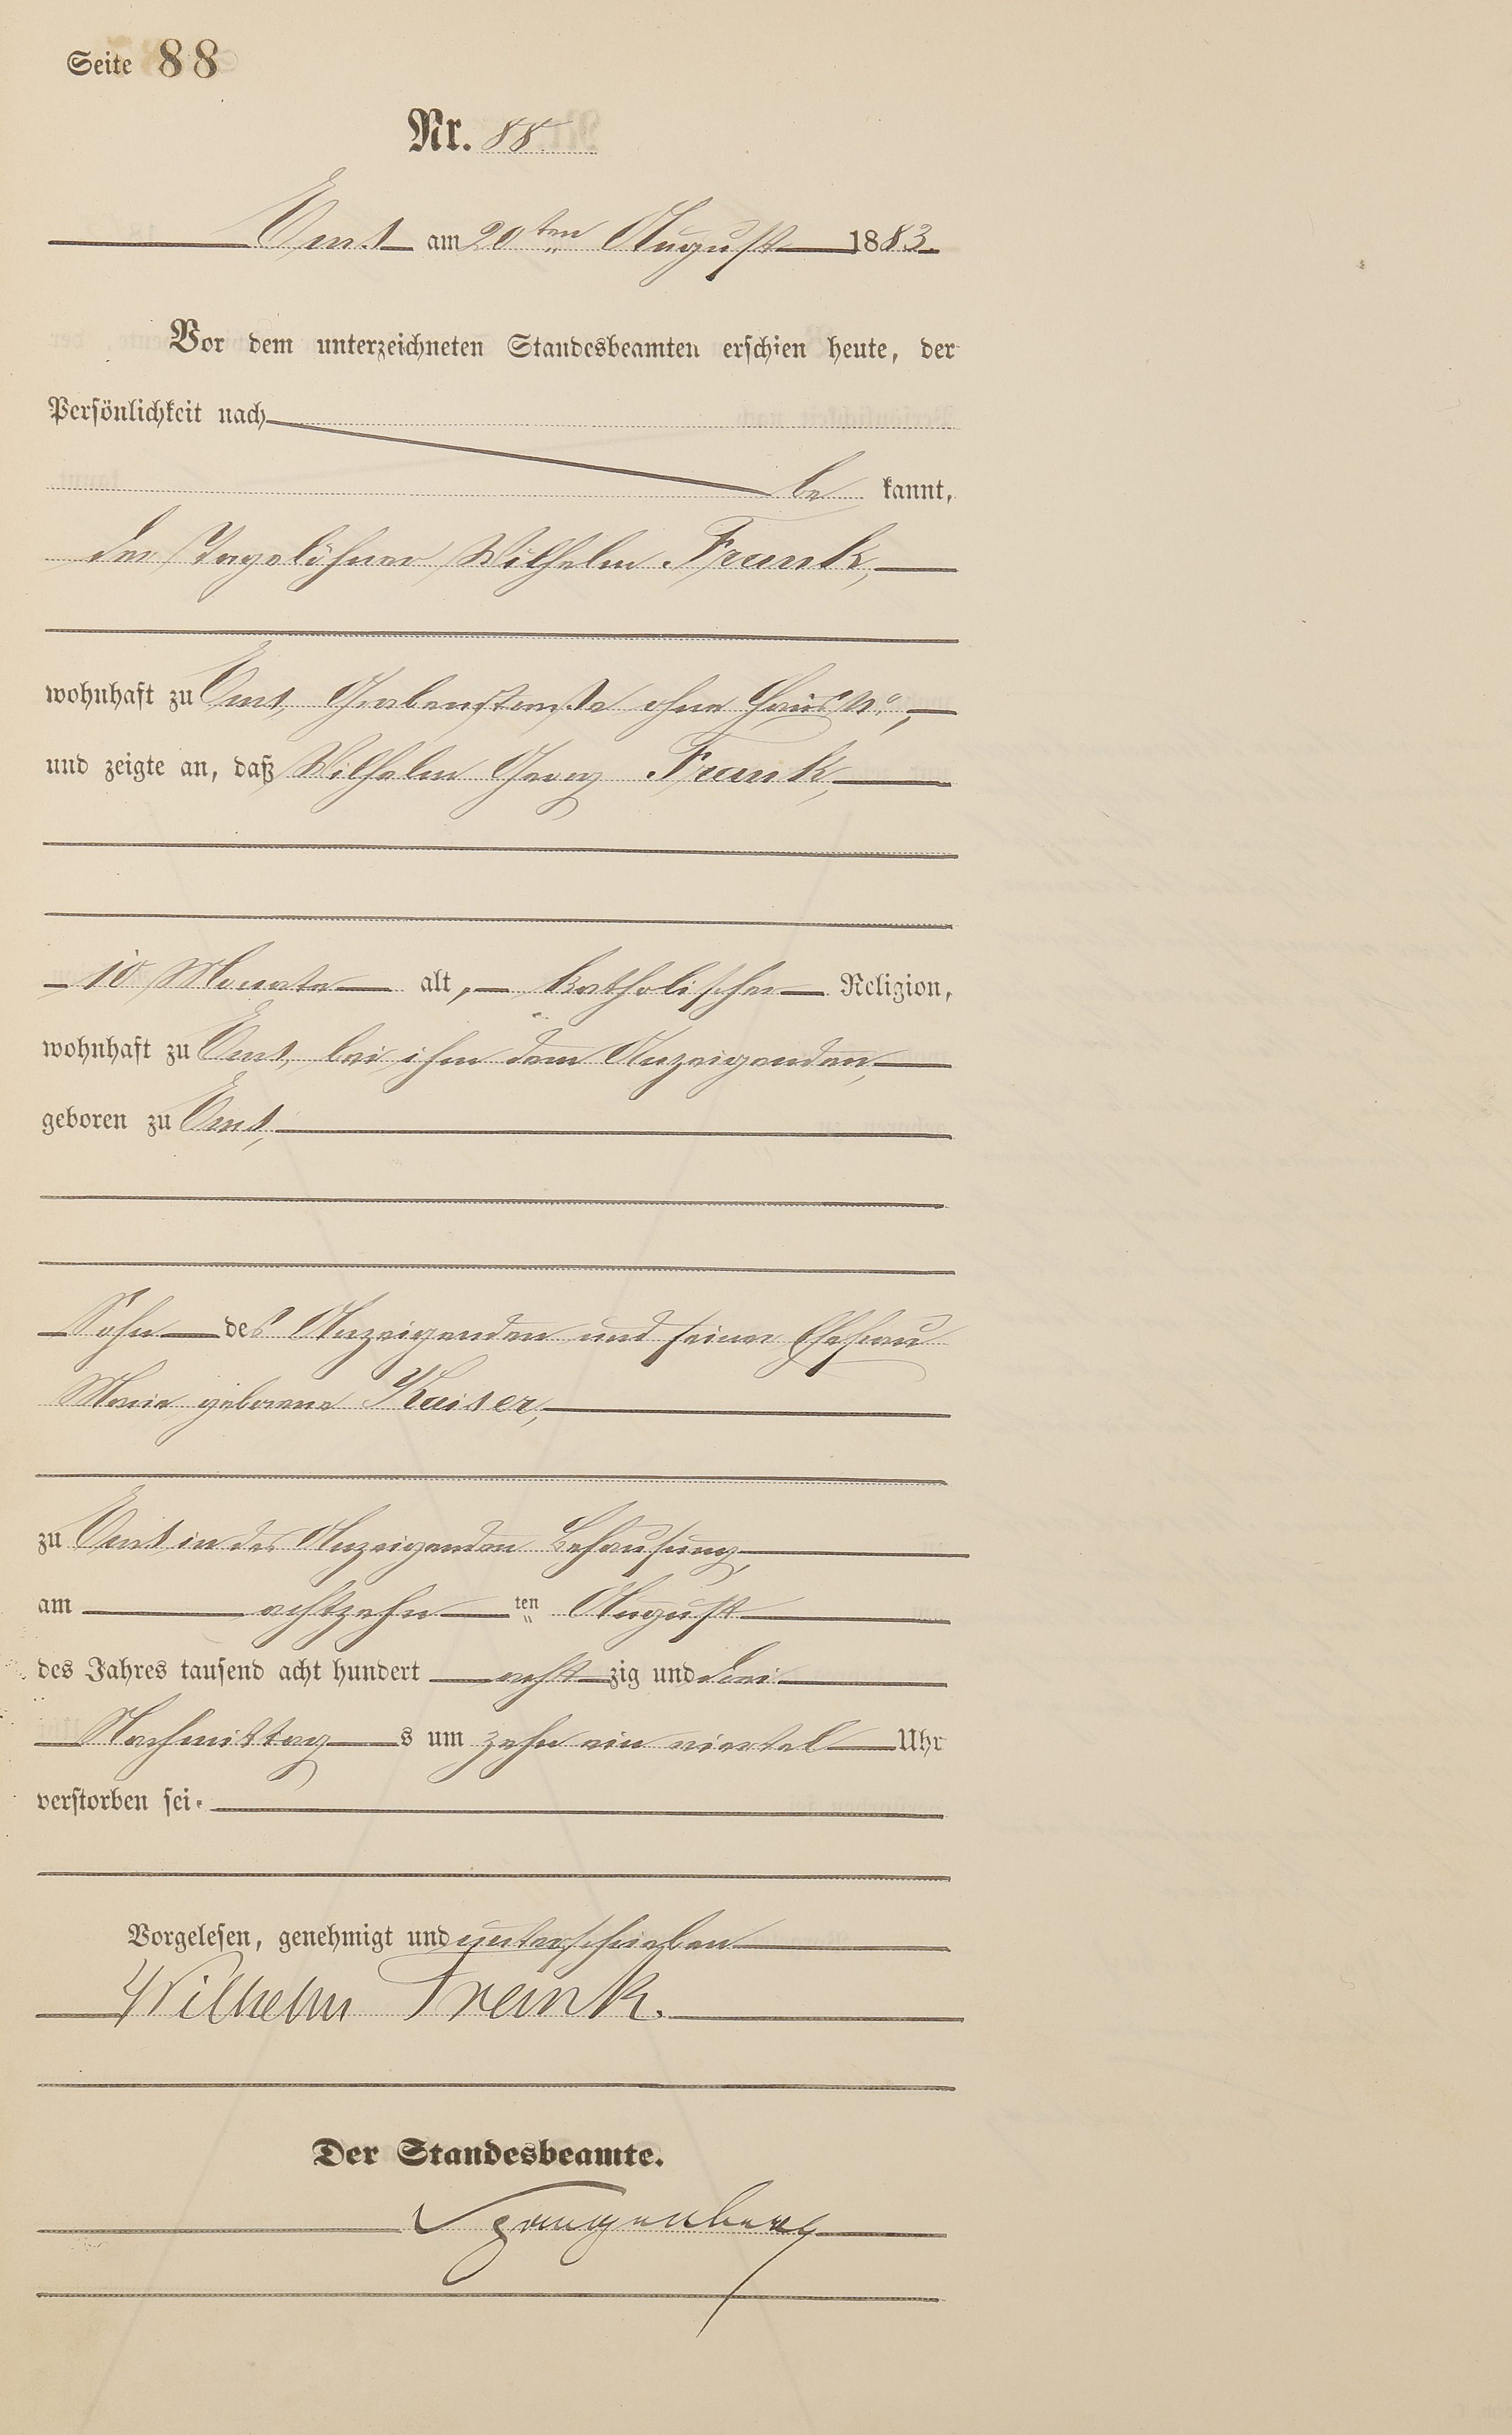 Seite 88
Nr. 88.
Ems am 20ten August 1883.
Vor dem unterzeichneten Standesbeamten erschien heute, der
Persönlichkeit nach
be kannt,
der Tagelöhner Wilhelm Frank,
wohnhaft zu Ems, Grabenstraße ohne Haus No,
und zeigte an, daß Wilhelm Georg Frank,
10 Monate alt, katholischer Religion,
wohnhaft zu Ems, bei ihm dem Anzeigenden,
geboren zu Ems,
Sohn des Anzeigenden und seiner Ehefrau
Marie geborene Kaiser,
zu Ems in des Anzeigenden Behausung,
am achtzehn ten August
des Jahres tausend acht hundert acht zig und drei
Nachmittag s um zehn ein viertel Uhr
verstorben sei.
Vorgelesen, genehmigt und unterschrieben
Wilhelm Frank.
Der Standesbeamte.
Spangenberg